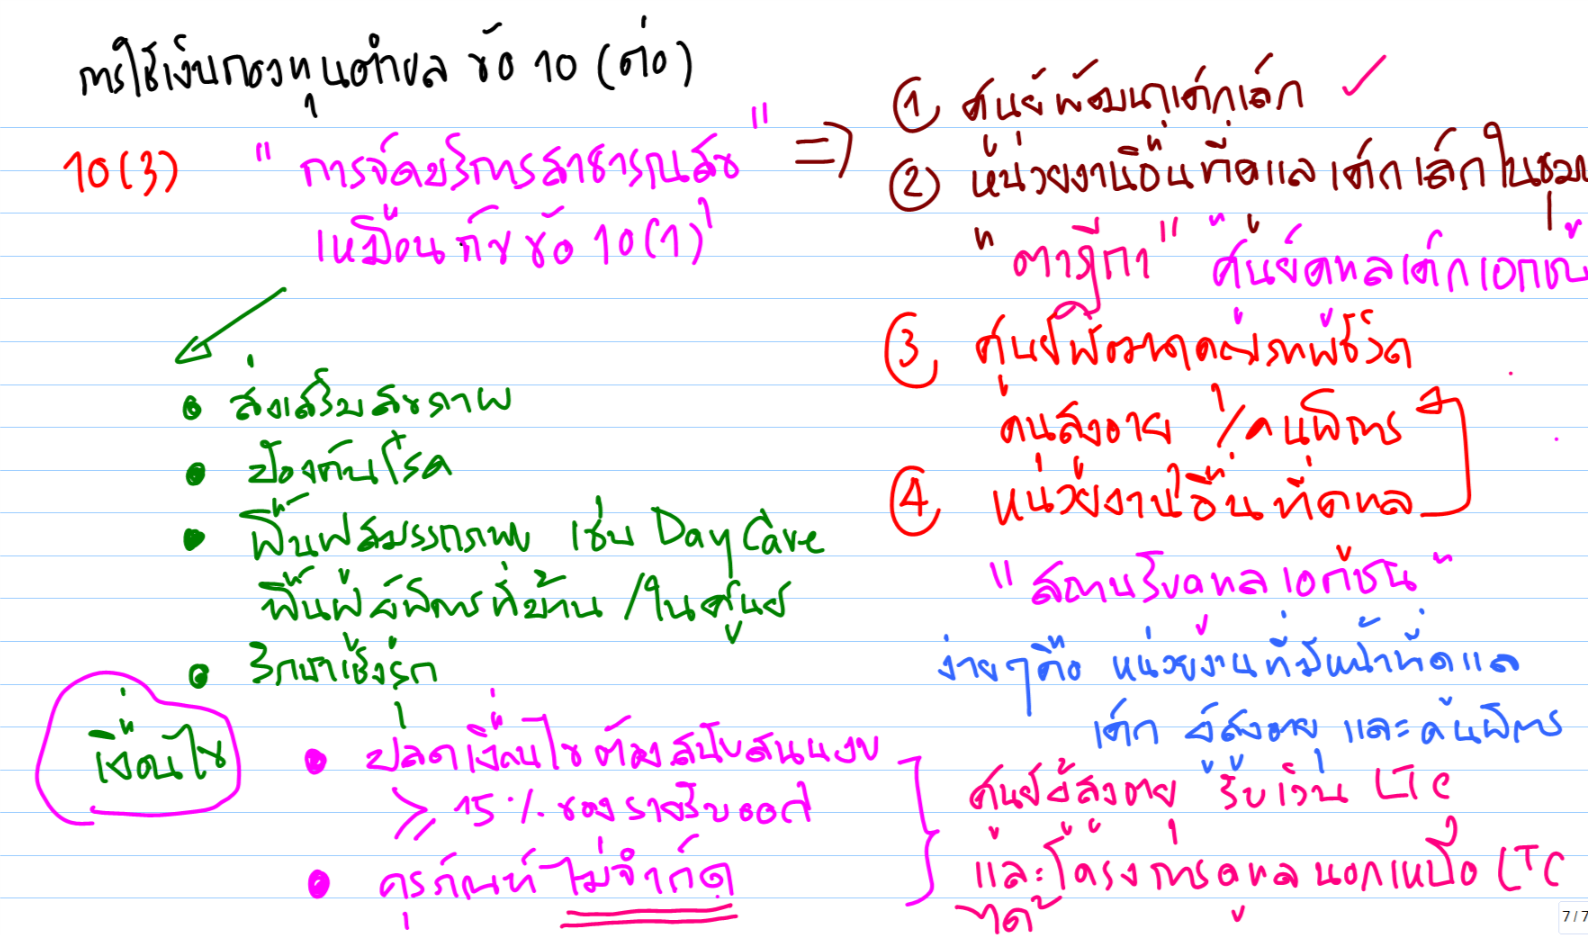 การใช้เงินกองทุนตำบล ข้อ 10 (ต่อ)
10(3) "การจัดบริการสาธารณสุข
เหมือนกับข้อ 10(1)" =>
• ส่งเสริมสุขภาพ
• ป้องกันโรค
• ฟื้นฟูสมรรถภาพ เช่น Day Care
ฟื้นฟูผู้พิการที่บ้าน / ในศูนย์
• รักษาเชิงรุก
เงื่อนไข
• ปลดเงื่อนไข ต้องสนับสนุนงบ
≥ 15 % ของรายรับออก
• ครุภัณฑ์ ไม่จำกัด
① ศูนย์พัฒนาเด็กเล็ก ✓
② หน่วยงานอื่นที่ดูแลเด็กเล็กในชุมช
"ตาฎีกา" "ศูนย์ดูแลเด็กเอกชน
③ ศูนย์พัฒนาคุณภาพชีวิต
คนสูงอายุ / คนพิการ
④ หน่วยงานอื่นที่ดูแล
"สถานรับดูแลเอกชน"
ง่ายๆคือ หน่วยงานที่มีหน้าที่ดูแล
เด็ก ผู้สูงอายุ และคนพิการ
ศูนย์ผู้สูงอายุ รับเงิน LTC
และโครงการดูแลนอกเหนือ LTC
ได้
7/7